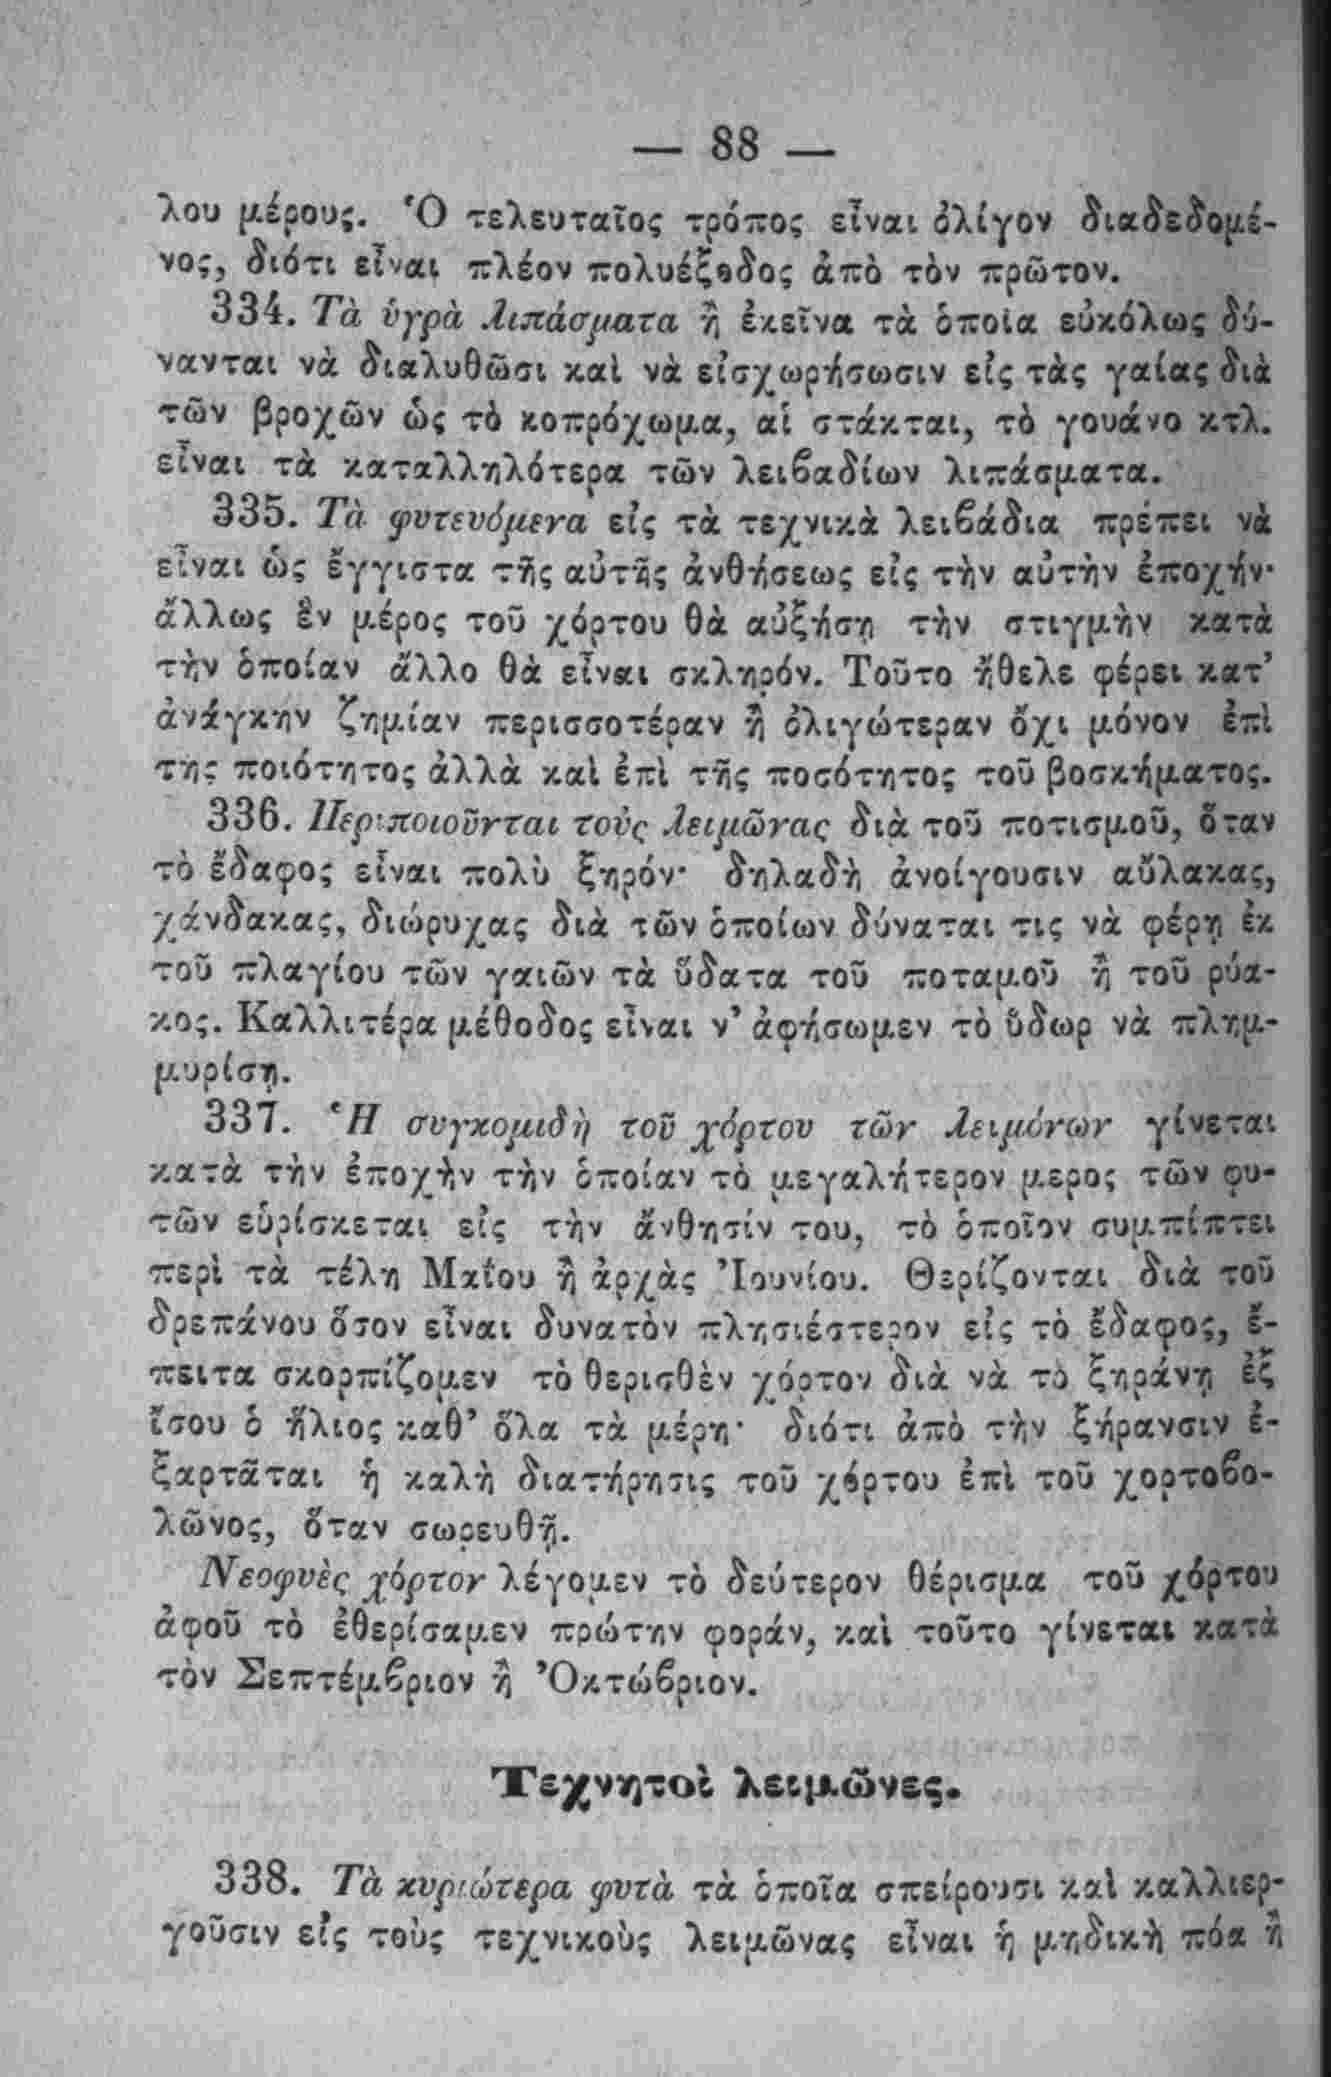 — 88 —
λου μέρους. Ὁ τελευταῖος τρόπος εἶναι ὀλίγον διαδεδομέ-
νος, διότι εἶναι πλέον πολυέξοδος ἀπὸ τὸν πρῶτον.
334. Τὰ ὑγρὰ λιπάσματα ἢ ἐκεῖνα τὰ ὁποῖα εὐκόλως δύ-
νανται νὰ διαλυθῶσι καὶ νὰ εἰσχωρήσωσιν εἰς τὰς γαίας διὰ
τῶν βροχῶν ὡς τὸ κοπρόχωμα, αἱ στάκται, τὸ γουάνο κτλ.
εἶναι τὰ καταλληλότερα τῶν λειβαδίων λιπάσματα.
335. Τὰ φυτευόμενα εἰς τὰ τεχνικὰ λειβάδια πρέπει νὰ
εἶναι ὡς ἔγγιστα τῆς αὐτῆς ἀνθήσεως εἰς τὴν αὐτὴν ἐποχήν·
ἄλλως ἓν μέρος τοῦ χόρτου θὰ αὐξήσῃ τὴν στιγμὴν κατὰ
τὴν ὁποίαν ἄλλο θὰ εἶναι σκληρόν. Τοῦτο ἤθελε φέρει κατ’
ἀνάγκην ζημίαν περισσοτέραν ἢ ὀλιγώτεραν ὄχι μόνον ἐπὶ
της ποιότητος ἀλλὰ καὶ ἐπὶ τῆς ποσότητος τοῦ βοσκήματος.
336. Περιποιοῦνται τοὺς λειμῶνας διὰ τοῦ ποτισμοῦ, ὅταν
τὸ ἔδαφος εἶναι πολὺ ξηρόν· δηλαδὴ ἀνοίγουσιν αὔλακας,
χάνδακας, διώρυχας διὰ τῶν ὁποίων δύναται τις νὰ φέρῃ ἐκ
τοῦ πλαγίου τῶν γαιῶν τὰ ὕδατα τοῦ ποταμοῦ ἢ τοῦ ρύα-
κος. Καλλιτέρα μέθοδος εἶναι ν’ ἀφήσωμεν τὸ ὕδωρ νὰ πλημ-
μυρίσῃ.
337. Ἡ συγκομιδὴ τοῦ χόρτου τῶν λειμόνων γίνεται
κατὰ τὴν ἐποχὴν τὴν ὁποίαν τὸ μεγαλήτερον μερος τῶν φυ-
τῶν εὑρίσκεται εἰς τὴν ἄνθησίν του, τὸ ὁποῖον συμπίπτει
περὶ τὰ τέλη Μαΐου ἢ ἀρχὰς Ἰουνίου. Θερίζονται διὰ τοῦ
δρεπάνου ὅσον εἶναι δυνατὸν πλησιέστερον εἰς τὸ ἔδαφος, ἔ-
πειτα σκορπίζομεν τὸ θερισθὲν χόρτον διὰ νὰ τὸ ξηράνῃ ἐξ
ἴσου ὁ ἥλιος καθ’ ὅλα τὰ μέρη· διότι ἀπὸ τὴν ξήρανσιν ἐ-
ξαρτᾶται ἡ καλὴ διατήρησις τοῦ χόρτου ἐπὶ τοῦ χορτοβο-
λῶνος, ὅταν σωρευθῇ.
Νεοφυὲς χόρτον λέγομεν τὸ δεύτερον θέρισμα τοῦ χόρτου
ἀφοῦ τὸ ἐθερίσαμεν πρώτην φοράν, καὶ τοῦτο γίνεται κατὰ
τὸν Σεπτέμβριον ἢ Ὀκτώβριον.
Τεχνητοὶ λειμῶνες.
338. Τὰ κυριώτερα φυτὰ τὰ ὁποῖα σπείρουσι καὶ καλλιερ-
γοῦσιν εἰς τοὺς τεχνικοὺς λειμῶνας εἶναι ἡ μηδικὴ πόα ἢ